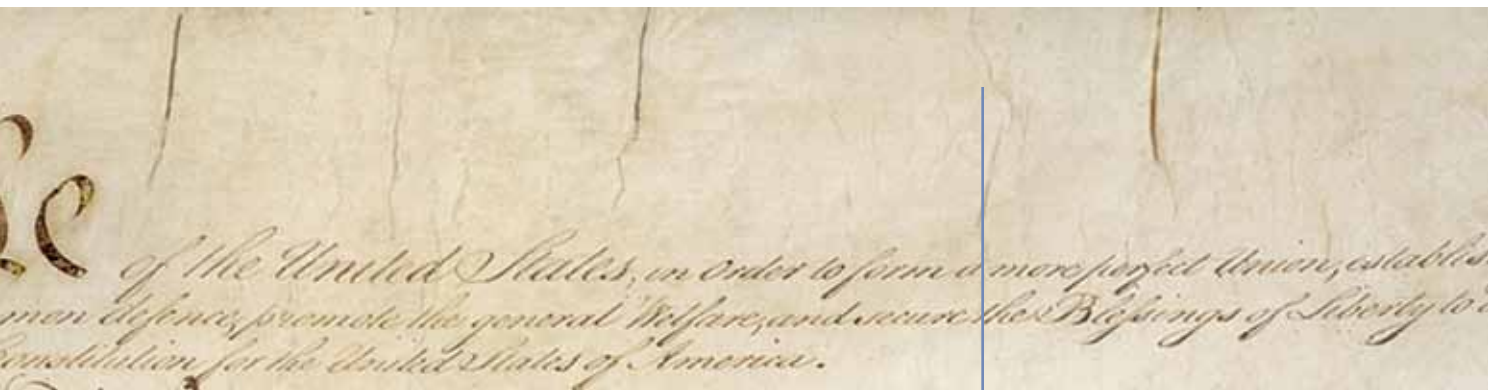 le
of the United States, in Order to form a more perfect Union, establis
mon defence, promote the general Welfare, and secure the Blessings of Liberty to
Constitution for the United States of America.